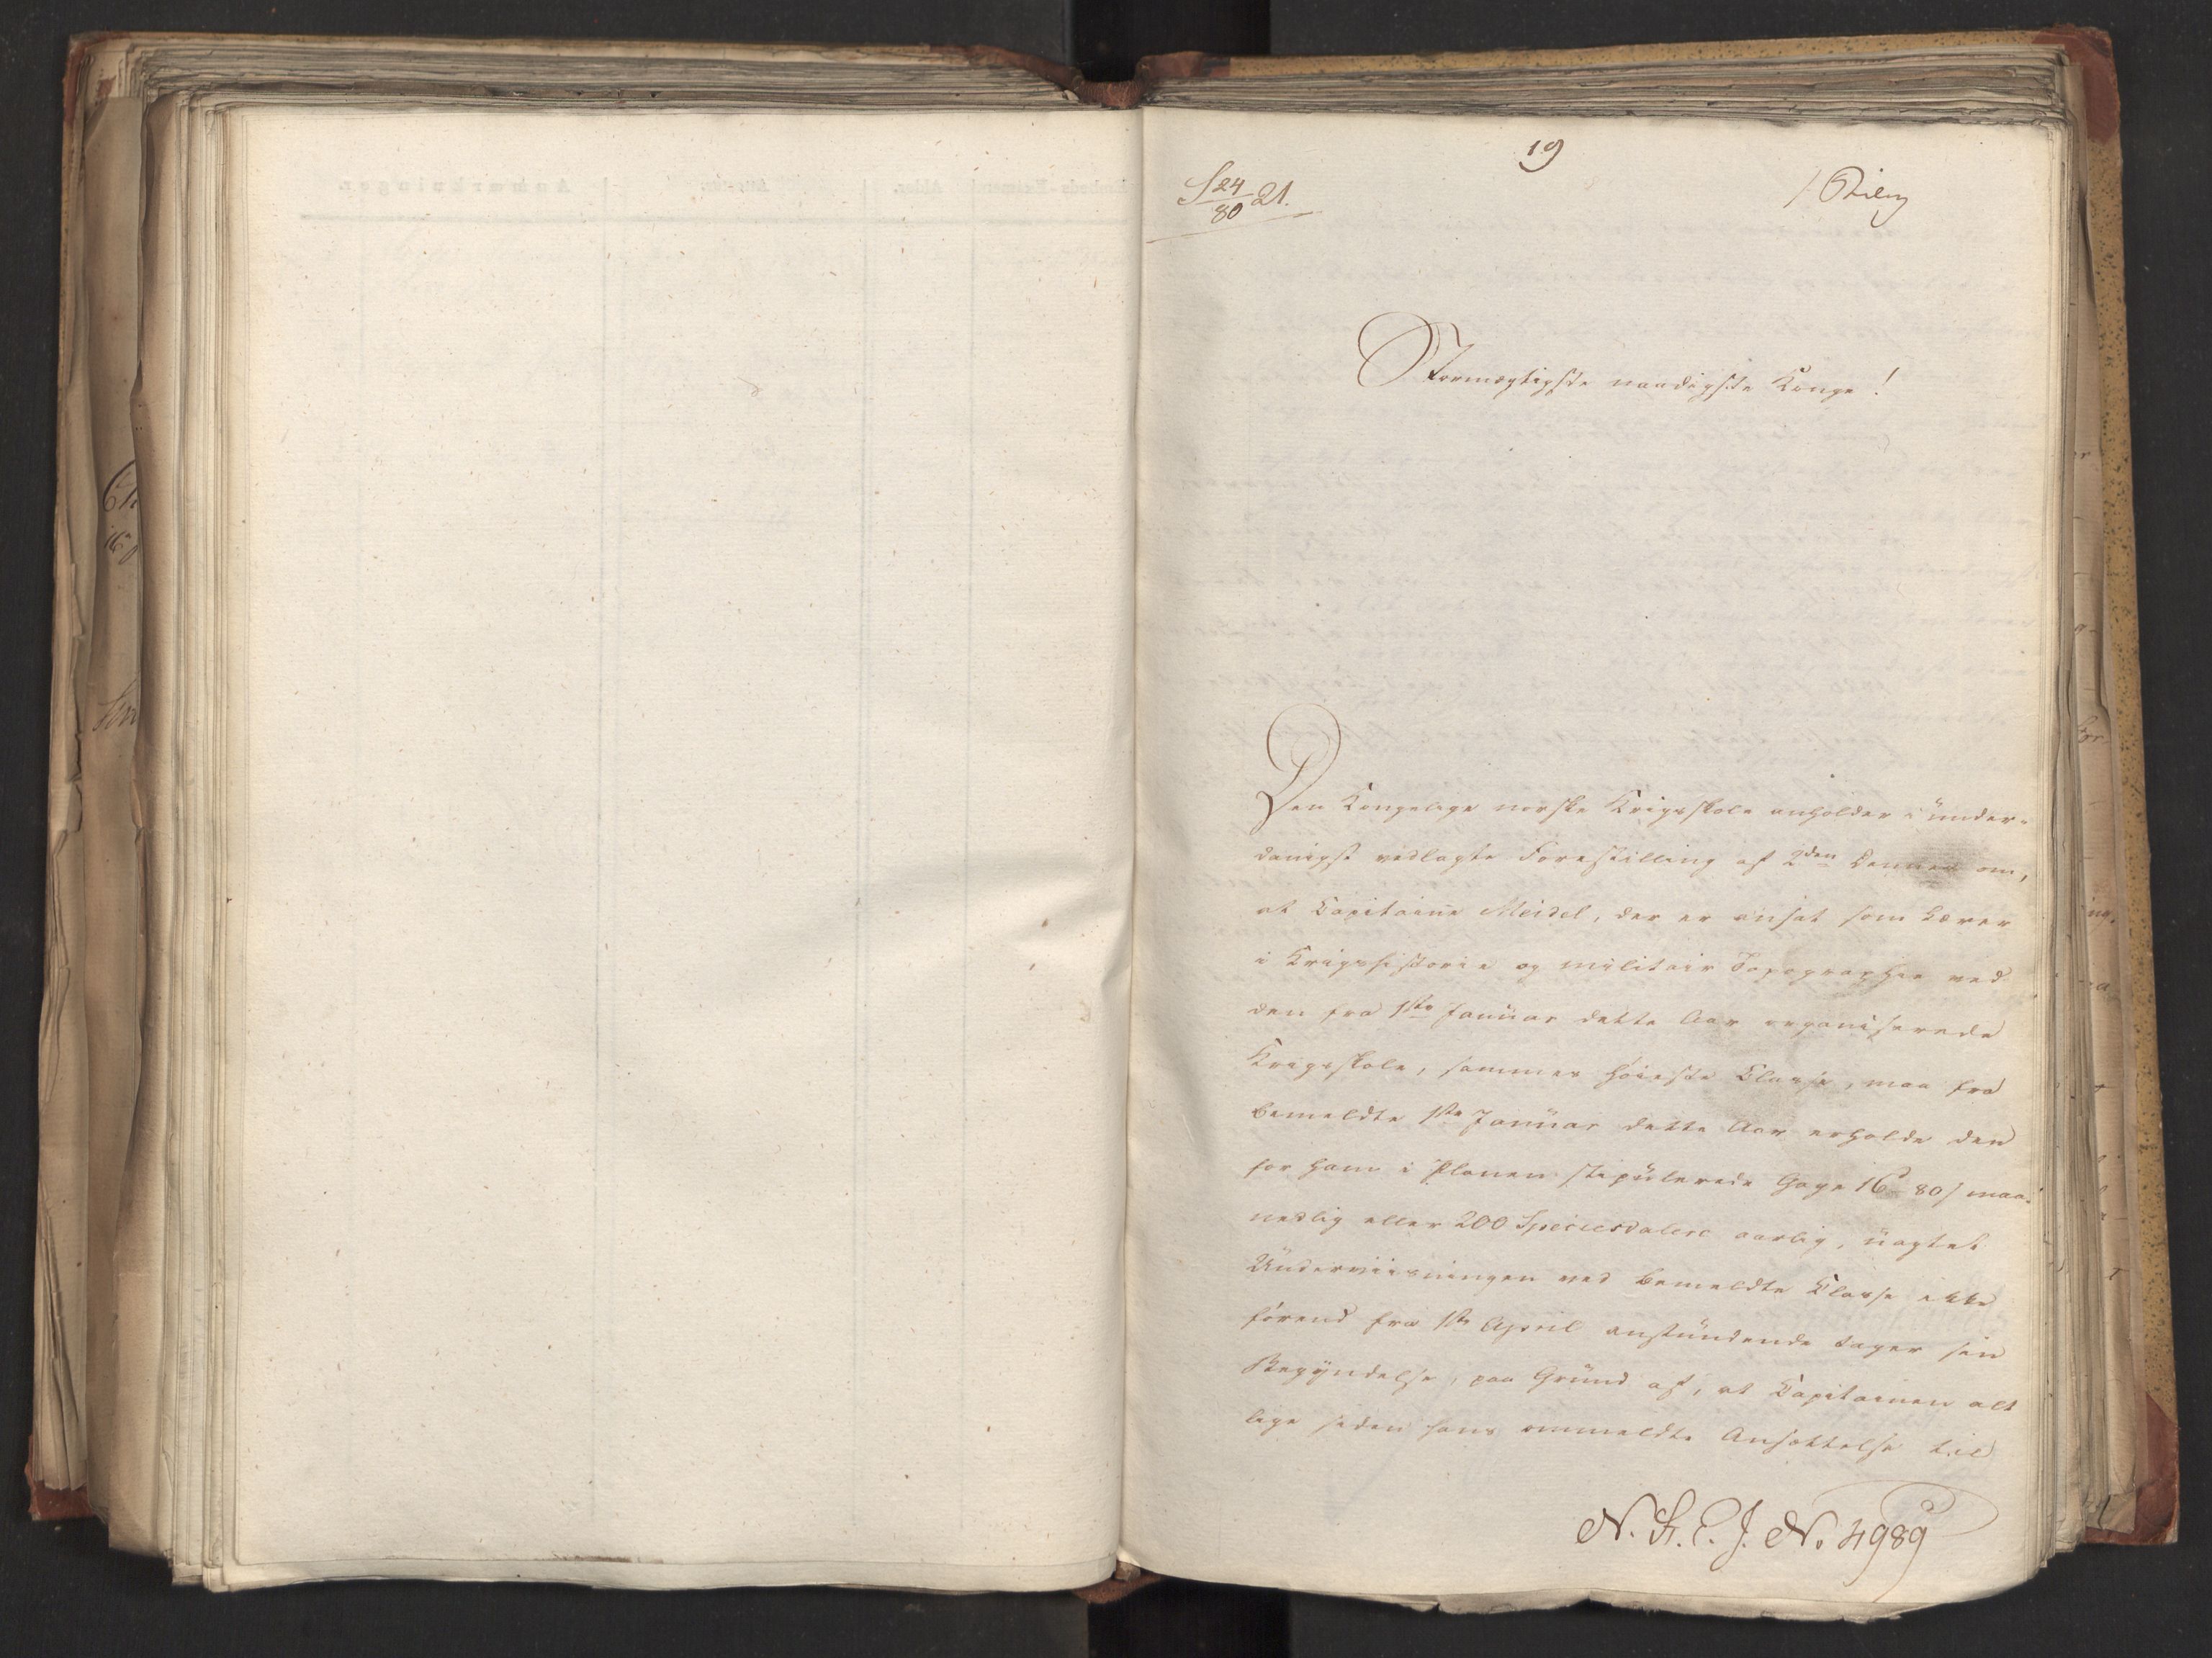 19
S 24/80 21.
1 Bilag
Stormægtigste naadigste Konge!
Den Kongelige norske Krigsskole anholder i under-
danigst vedlagte Forestilling af 2den dennes om,
at Capitaine Meidel, der er ansat som Lærer
i Krigshistorie og militair Topographie ved
den fra 1ste Januar dette Aar organiserede
Krigsskole, sammes høieste Classe, maa fra
bemeldte 1ste Januar dette Aar erholde den
for ham i Planen stipulerede Gage 16 - 80 s maa-
nedlig eller 200 Speciesdalere aarlig, uagtet
Underviisningen ved bemeldte Classe ikke
førend fra 1ste April anstundende tager sin
Begyndelse, paa Grund af, at Capitainen alt
lige siden hans ommeldte Ansættelse til
N. St. E. J. No 4989